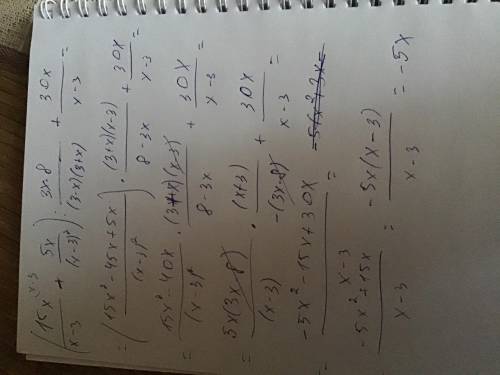 (15x^{x-3}/(x-3) + 5x/(x-3)²) : (3x-8)/((3-x)(3+x)) + 30x/(x-3) =
= (15x²-45x+5x)/(x-3)² · (3+x)(x-3)/(8-3x) + 30x/(x-3) =
= (15x²-40x)/(x-3)² · (3+x)(x-3)/(8-3x) + 30x/(x-3) =
= 5x(3x-8)/(x-3) · (x+3)/(-(3x-8)) + 30x/(x-3) =
= (-5x²-15x+30x)/(x-3) =
(-5x²+15x)/(x-3) = -5x(x-3)/(x-3) = -5x